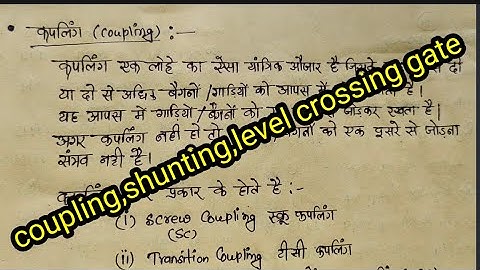 कपलिंग (coupling) :-
कपलिंग एक लोहे का ऐसा यांत्रिक औजार है जिसके दो
या दो से अधिक बैगनों /गाडियों को आपस में है।
यह आपस में गाडियों /बैगनों को जोडकर रखता है।
अगर कपलिंग नही हो तो को एक दूसरे से जोडना
संभव नही है।
प्रकार के होते है :-
(i) Screw Coupling स्क्रू कपलिंग
(SC)
(ii) Transition Coupling टीसी कपलिंग
coupling,shunting,level crossing gate